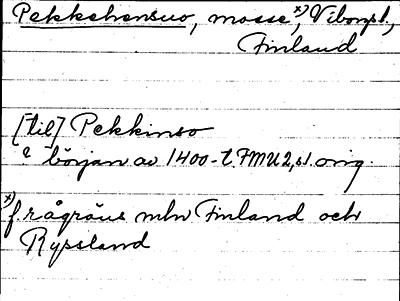 Pekkehensuo, mosse,x) Viborgsl.,
Finland
[til] Pekkinso
i början av 1400-t. FMU 2, s1. orig.
x) f. rågräns mln Finland och
Ryssland